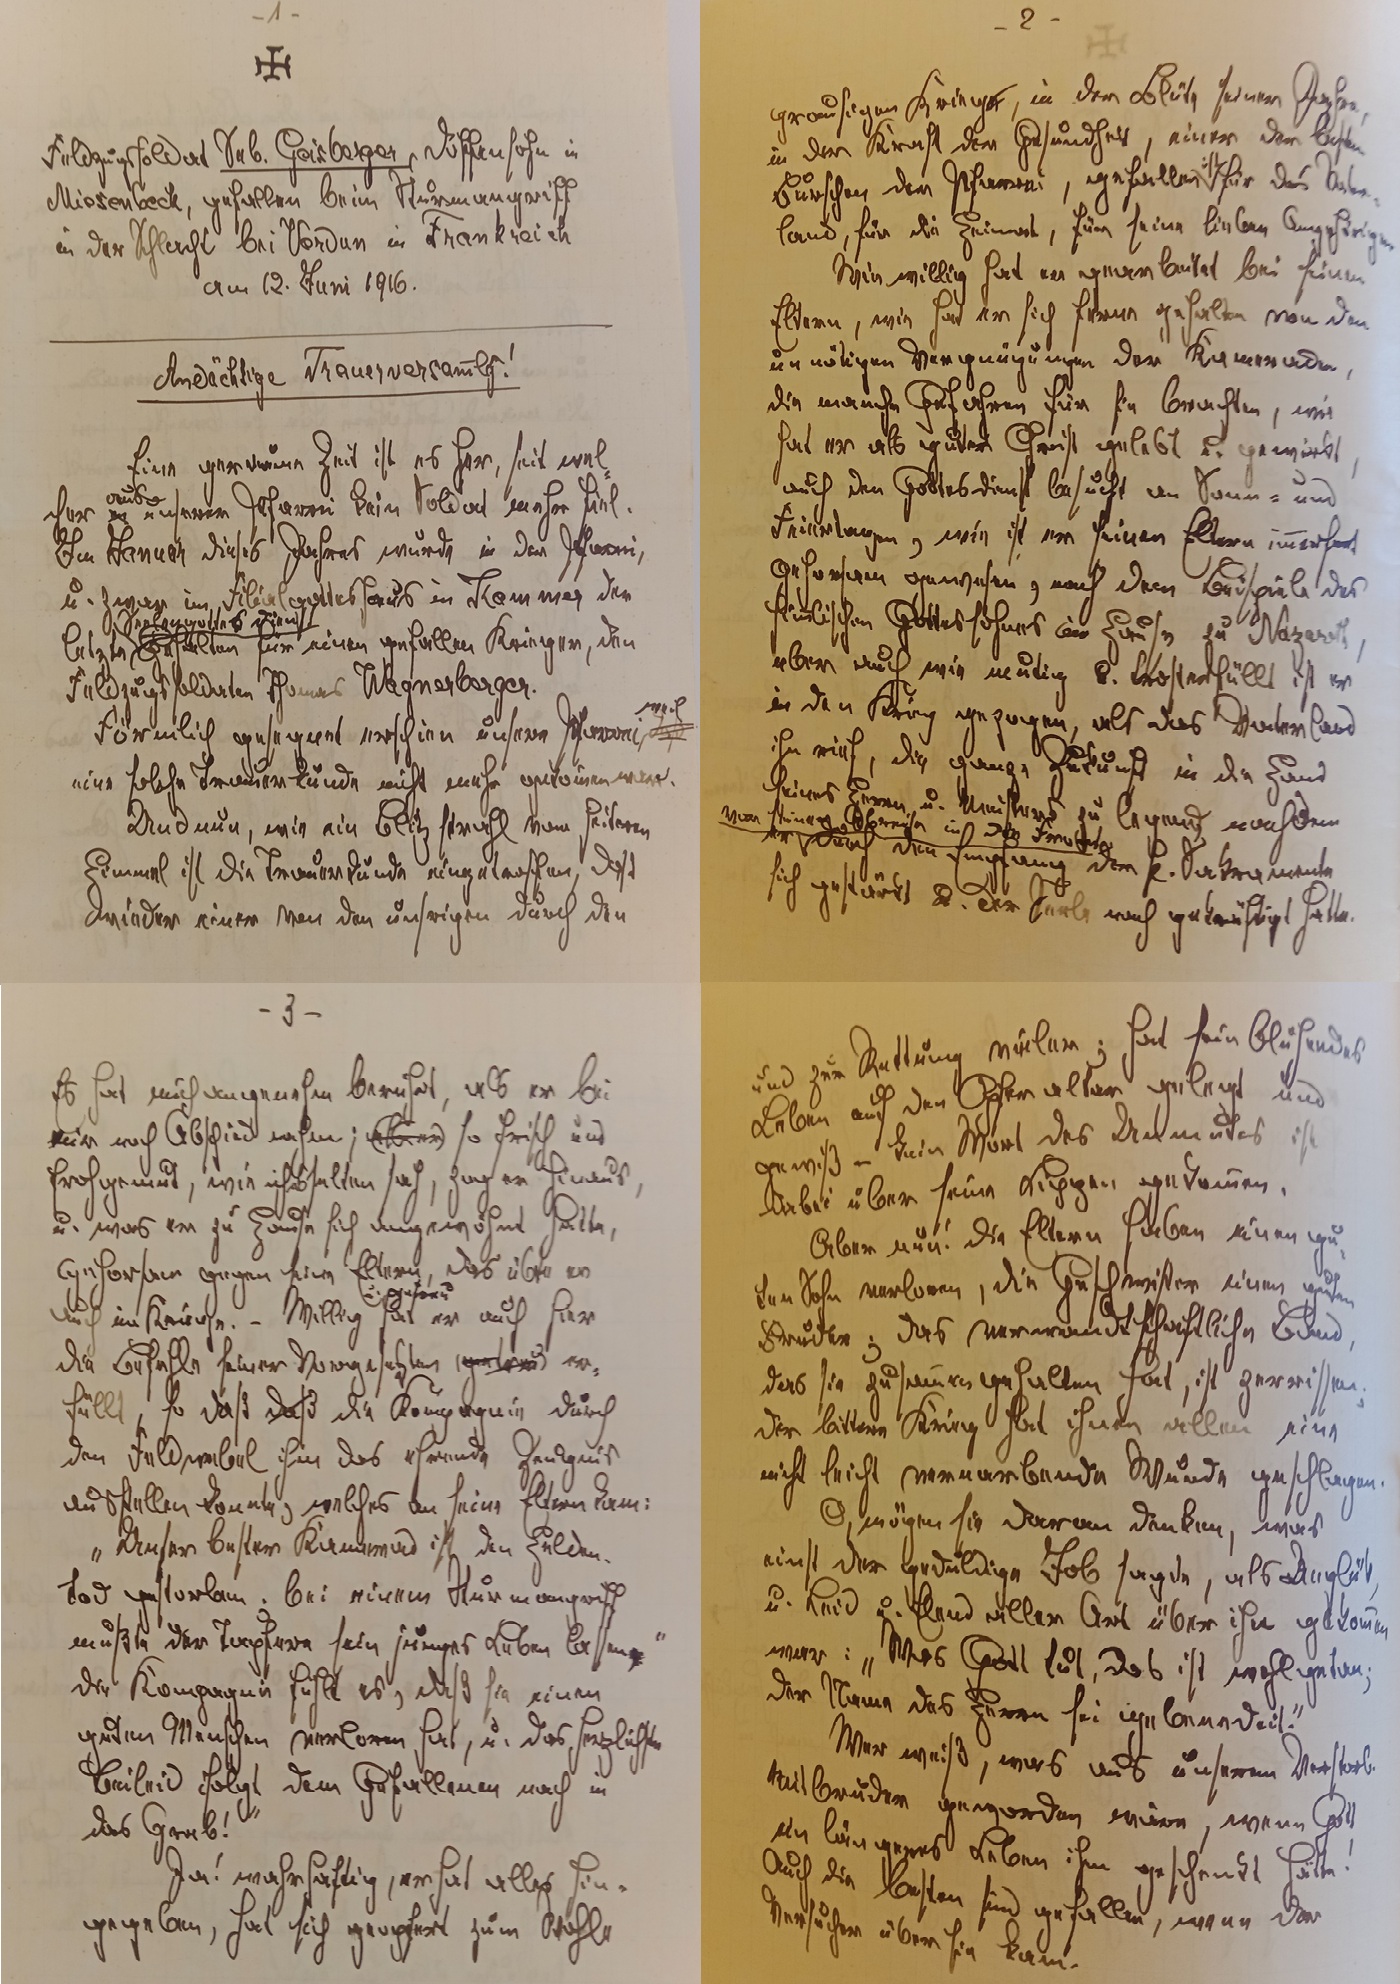 - 1 -
Feldzugssoldat Seb. Geisberger, Döpfensohn in
Miesenbeck, gefallen beim Sturmangriff
in der Schlacht bei Verdun in Frankreich
am 12. Juni 1916.
Andächtige Trauerversamlg!
Eine geraume Zeit ist es her, seit wel-
cher aus unserer Pfarrei kein Soldat mehr fiel.
Im Jänner dieses Jahres wurde in der Pfarrei,
u. zwar im Filialgotteshaus in Kammer der
letzte Seelengottesdienst gehalten für einen gefallen Krieger, den
Feldzugssoldaten Thomas Wagnerberger.
Förmlich gesegnet erschien unsere Pfarrei, weil
eine solche Trauerkunde nicht mehr gekomen war.
Und nun, wie ein Blitzstrahl vom heiteren
Himmel ist die Trauerkunde eingetroffen, daß
wieder einer von den unsrigen durch den
- 2 -
grausigen Krieg, in der Blüte seiner Jahre,
in der Kraft der Gesundheit, einer der besten
Burschen der Pfarrei, gefallen ist für das Vater-
land, für die Heimat, für seine lieben Angehörigen.
Wie willig hat er gearbeitet bei seinen
Eltern, wie hat er sich ferne gehalten von den
unnötigen Vergnügungen der Kameraden,
die manche Gefahren für sie brachten, wie
hat er als guter Christ gelebt u. gewirkt,
auch den Gottesdienst besucht an Sonn- und
Feiertagen, wie ist er seinen Eltern imerfort
gehorsam gewesen, nach dem Beispiele des
göttlichen Gottessohnes im Hause zu Nazareth,
aber auch wie mutig u. trosterfüllt ist er
in den Krieg gezogen, als das Vaterland
ihn rief, die ganze Zukunft in die Hand
seines Herrn u. Meisters zu legend nachdem
vor seiner Abreise in die Front
er durch den Empfang der hl. Sakramente
sich gestärkt u. der Seele nach gekräftigt hatte.
- 3 -
Es hat mich angenehm berührt, als er bei
mir noch Abschied nahm; so frisch und
frohgemut, wie ich's selten sah, zog er hinaus,
u. was er zu Hause sich angewöhnt hatte,
Gehorsam gegen seine Eltern, das übte er
auch im Kriege. - Willig hat er auch hier
die Befehle seiner Vorgesetzten er-
füllt, so daß die Kompagnie durch
den Feldwebel ihm das ehrende Zeugnis
ausstellen konnte, welches an seine Eltern kam:
„Unser bester Kamerad ist den Helden-
tod gestorben. Bei einem Sturmangriff
mußte der Tapfere sein junges Leben lassen"
die Kompagnie fühlt es, daß sie einen
guten Menschen verloren hat, u. das herzlichste
Beileid folgt dem Gefallenen nach in
das Grab!"
Ja! wahrhaftig, er hat alles hin-
gegeben, hat sich geopfert zum Wohle
und zur Rettung vieler; hat sein blühendes
Leben auf den Opferaltar gelegt und
gewiß - kein Wort des Unmutes ist
dabei über seine Lippen gekomen.
Aber nun! die Eltern haben einen gu-
ten Sohn verloren, die Geschwister einen guten
Bruder; das verwandtschaftliche Band,
das sie zusamengehalten hat, ist zerrissen;
der bittere Krieg hat ihnen allen eine
nicht leicht vernarbende Wunde geschlagen.
O, mögen sie daran denken, was
einst der geduldige Job sagte, als Unglück,
u. Leid u. Elend aller Art über ihn gekomen
war: „Was Gott tut, das ist wohlgetan;
der Name des Herrn sei gebenedeit."
Wer weiß, was aus unserem verstorb.
Mitbruder geworden wäre, wenn Gott
ein längeres Leben ihm geschenkt hätte!
Auch die besten sind gefallen, wenn der
Versucher über sie kam.